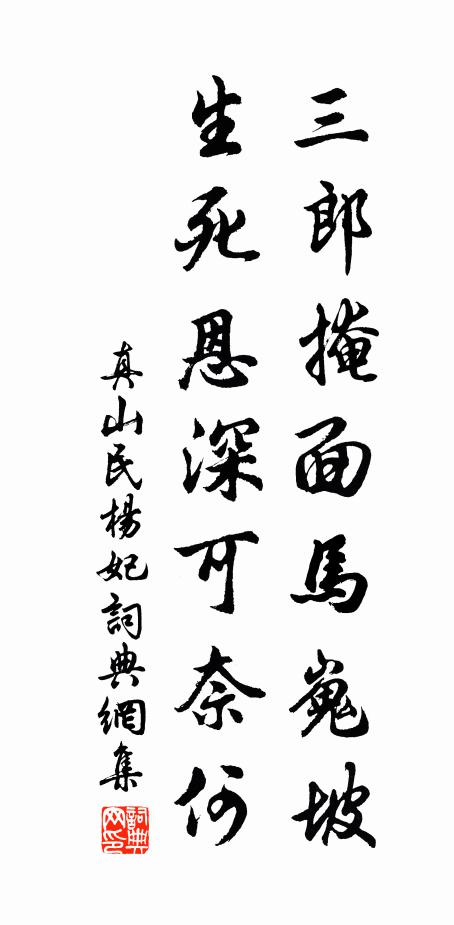 三郎掩面馬嵬坡
生死恩深可奈何
真山民楊妃詞典網集
詞典网印